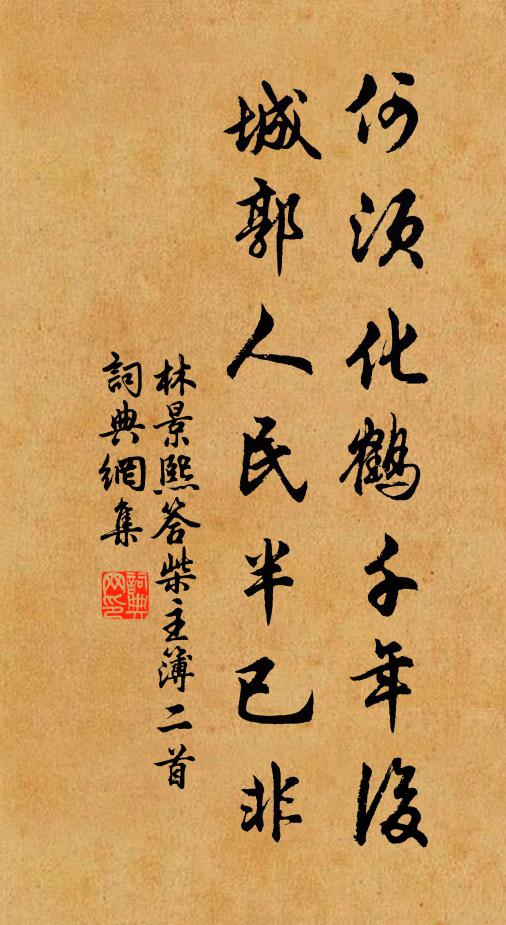 何須化鶴千年後
城郭人民半已非
林景熙答柴主簿二首
詞典網集
詞典网印